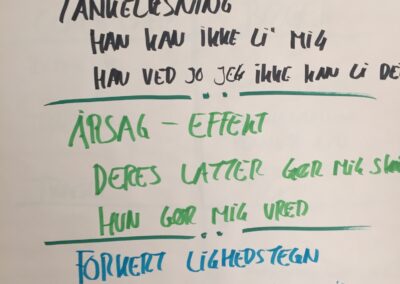 TANKELÆSNING
HAN KAN IKKE LI' MIG
HAN VED JO JEG IKKE KAN LI DE
ÅRSAG – EFFEKT
DERES LATTER GØR MIG
HUN GØR MIG VRED
FORKERT LIGHEDSTEGN